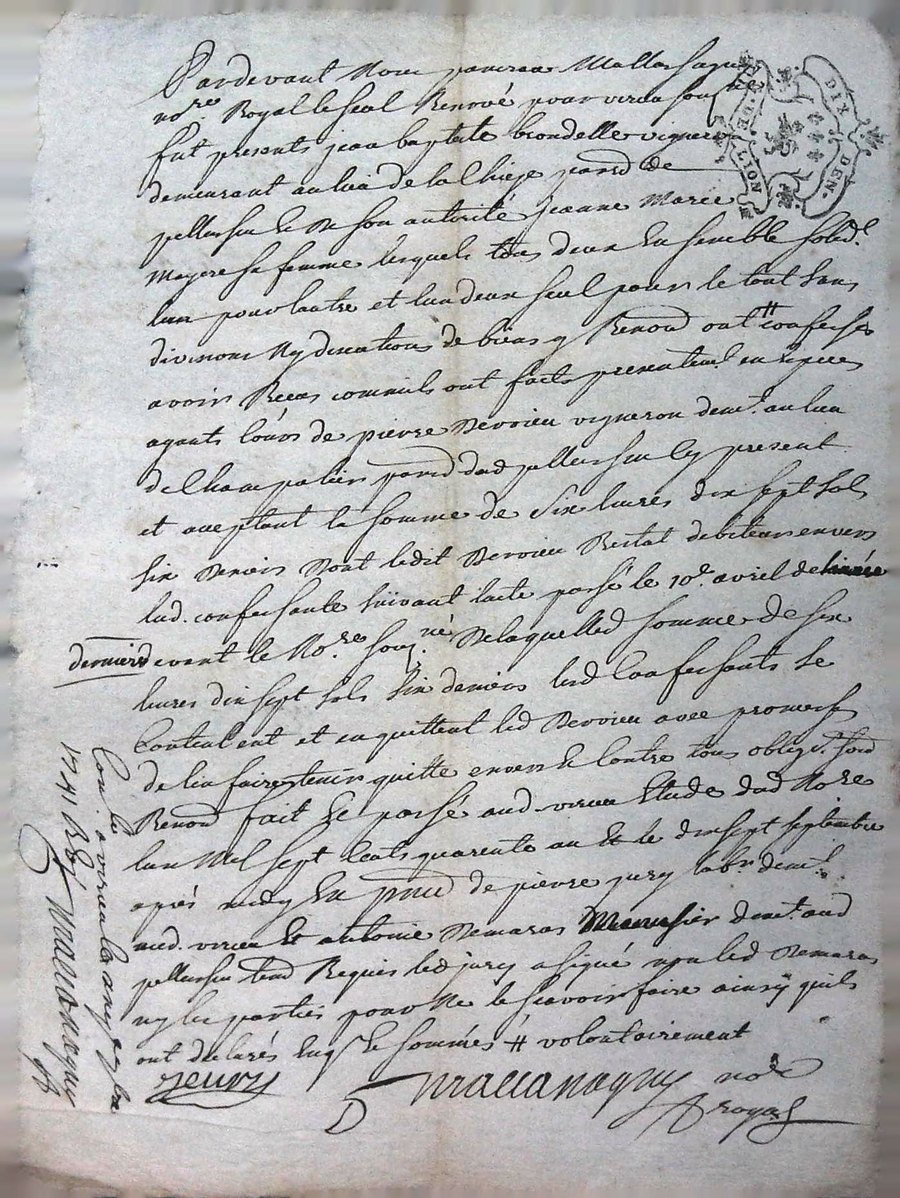 Pardevant Nous
no.re Royal le seel Renové pour virieu soussig
fut presents jean baptiste brondelle vigneron
demeurant au lieu de la par.d de
pellussieu Et De Son autorité jeanne Marie
Mayere sa femme lesquels tous deux Ensemble solid.t
lun pour lautre et lun deux seul pour le tout sans
divisions Ny discutions de biens y Renond ont # confessés
avoir Receus comme ils ont faits presentem.t en Especes
ayants Cours de pierre Dervieu vigneron dem.t au lieu
de par.d dud pellussieu Cy present
et acceptant la somme de Six livres dix sept sols
six Deniers Dont ledit Dervieu Restat debiteur envers
lud. confessants suivant lacte passé le 10.e avril de lannée
dernier devant le No.re sousig.né De laquelled somme de six
livres dix sept sols six deniers lesd Confessants se
Contentent et en quittent led Dervieu avec promesse
de len faire tenir quitte envers Et Contre tous oblig.s soud
Renond fait Et passé aud. virieu Etude dud No.re
lan Mil sept Cents quarente un Et le dixsept septembre
apres midy En pnce de pierre jury lab.r dem.t
aud. virieu Et antoine Demaras Menusier dem.t aud
pellussieu temd Requis led jury a signé non led Demaras
ny les parties pour Ne le scavoir faire ainsy quils
ont declarés Enq.s Et sommés # volontairement
Jeury
no.re
royal
Con.llé a virieu les
1741